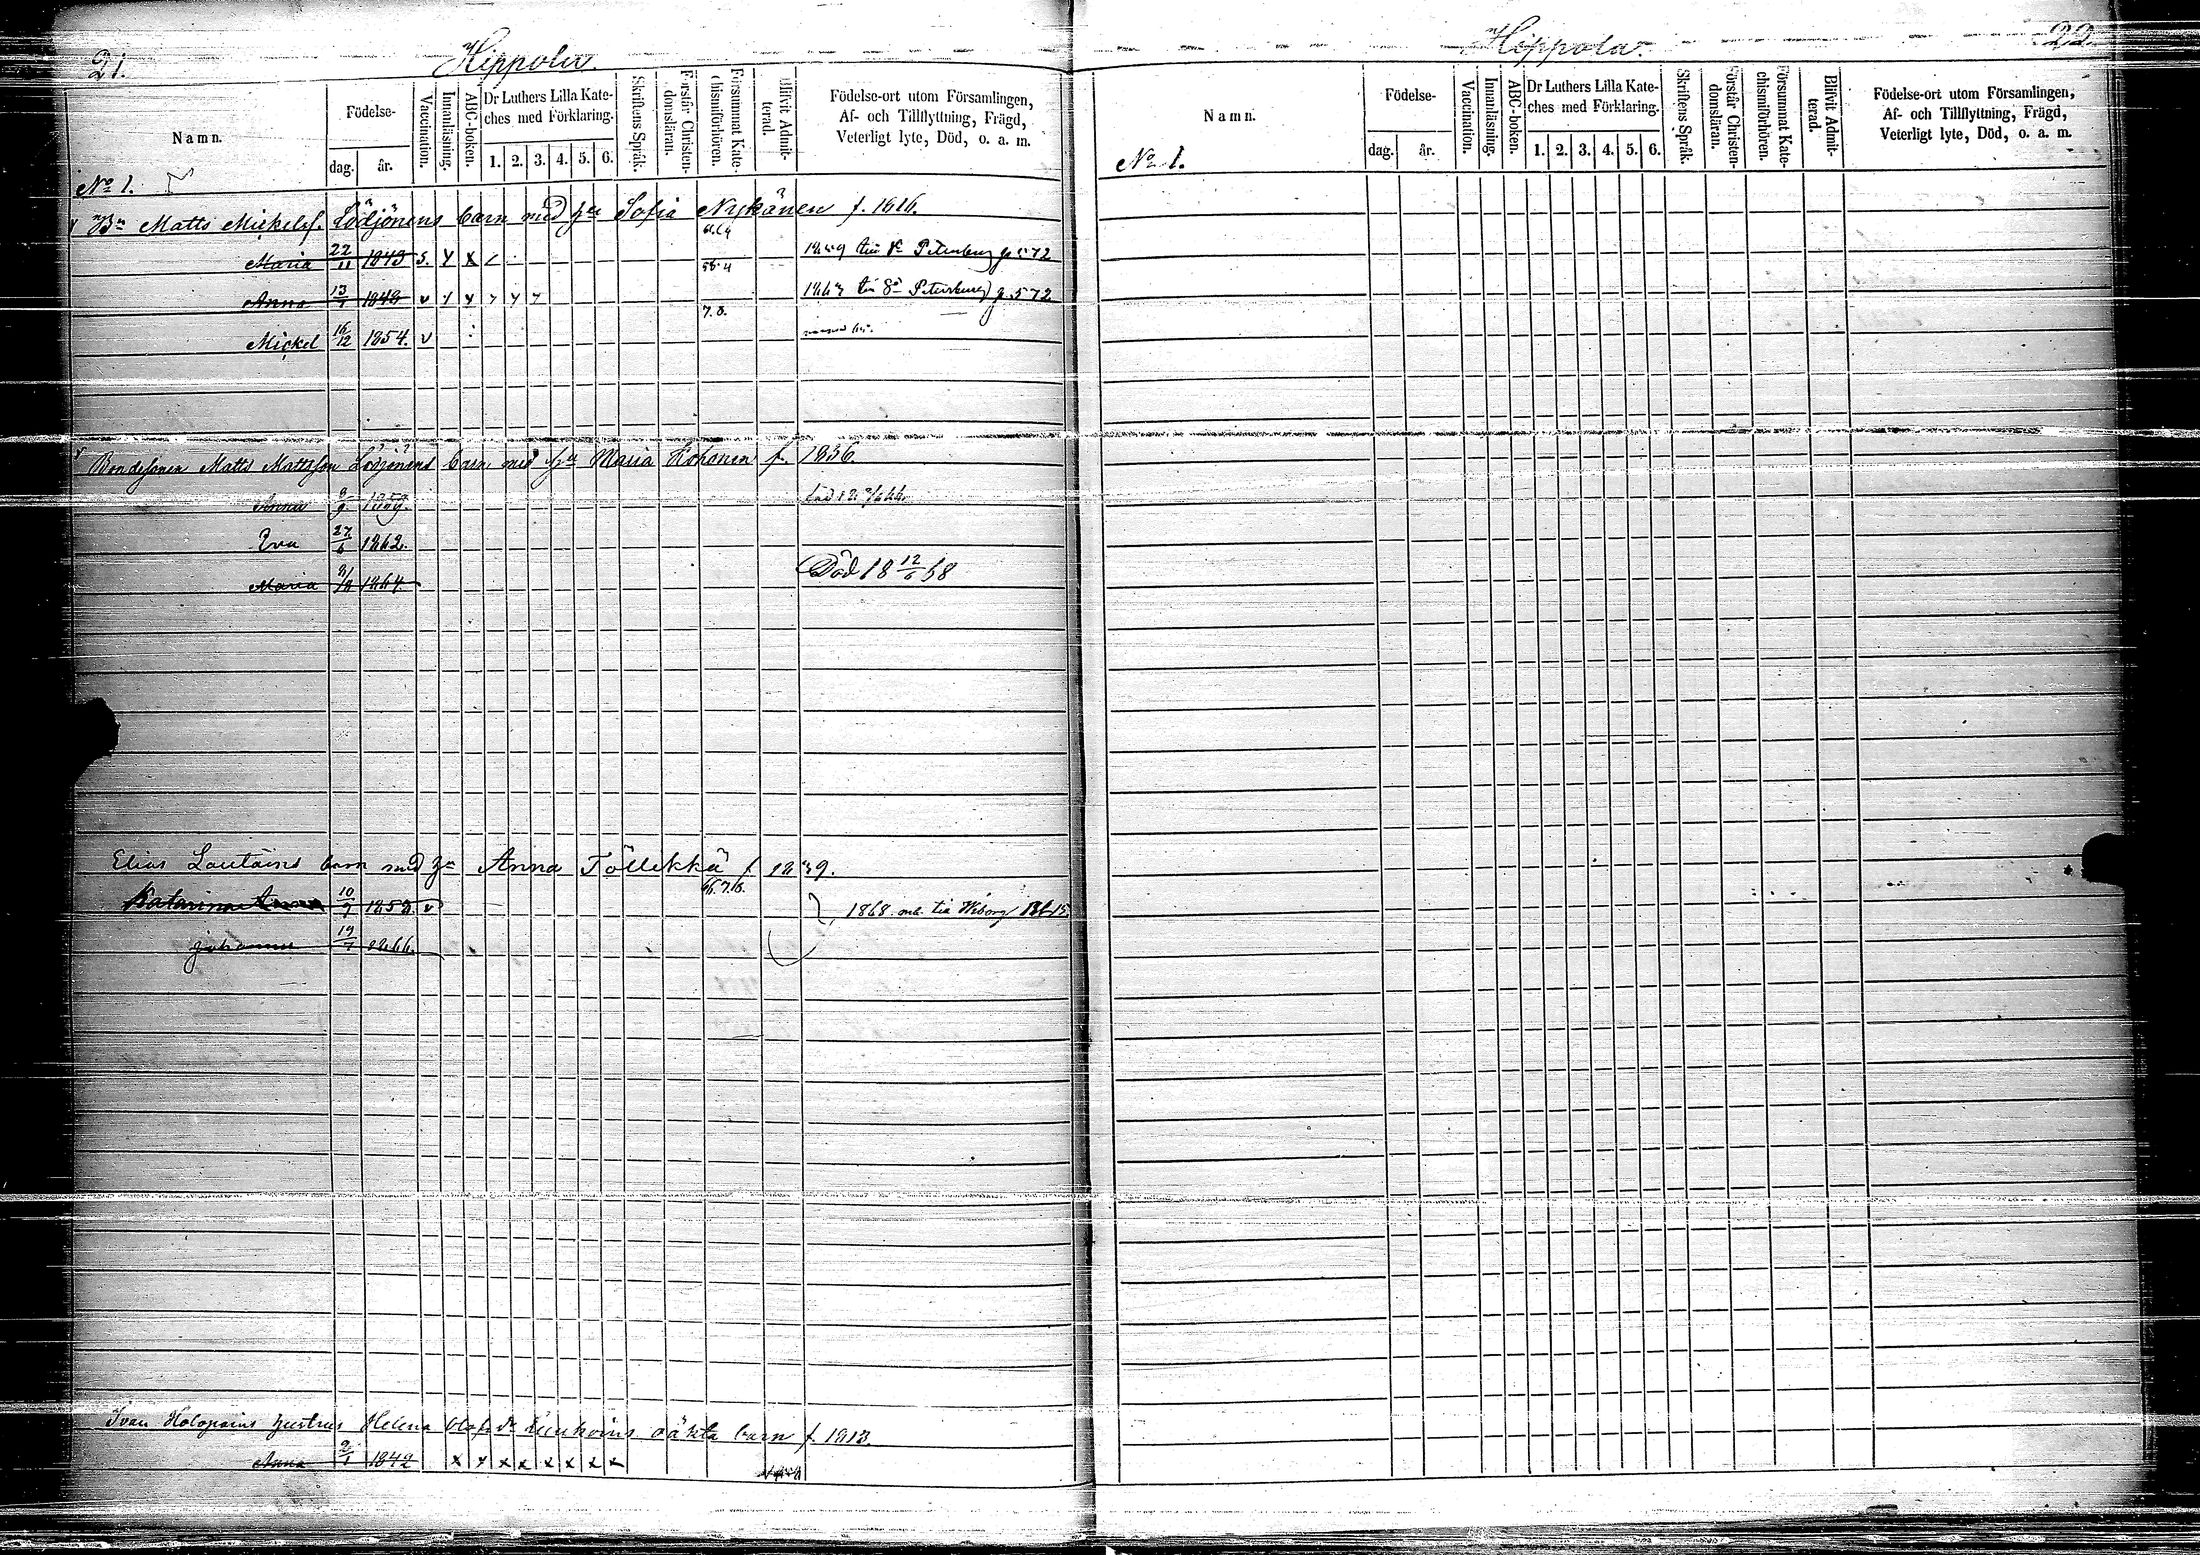 21.
Hippola.
Namn.
Födelse-
dag. år.
Vaccination.
Innanläsning.
ABC-boken.
Dr Luthers Lilla Kate-
ches med Förklaring.
1. 2. 3. 4. 5. 6.
Skriftens Språk.
Förstår Christen-
domsläran.
Försummat Kate-
chismiförhören.
Blifvit Admit-
terad.
Födelse-ort utom Församlingen,
Af- och Tillflyttning, Frägd,
Veterligt lyte, Död, o. a. m.
No 1.
Bn Matts Mickelss. Lödjönens barn med hu Sofia Nykänen f. 1816.
Maria 22/11 1843 s. y x
Anna 13/1 1849 v y y y y 7
7.8.
Mickel 16/12 1854. v
Bondesonen Matts Mattsson Lödjönens barn med hu Maria Kohonen f. 1836
Anna 1859.
Eva 27/6 1862.
Maria 1864. Död 18 12/6 68
Elias Lautains barn med hu Anna Töllikkä f.
Katarina 10/7 v 1868 till Wiborg
Johannes 19/7 1866.
Ivan Holopains hustrus Helena Olofsdr oäkta barn f. 1813.
Anna 2/1 1842 x y x x x x x x
Hippola.
22.
Namn.
Födelse-
dag. år.
Vaccination.
Innanläsning.
ABC-boken.
Dr Luthers Lilla Kate-
ches med Förklaring.
1. 2. 3. 4. 5. 6.
Skriftens Språk.
Förstår Christen-
domsläran.
Försummat Kate-
chismiförhören.
Blifvit Admit-
terad.
Födelse-ort utom Församlingen,
Af- och Tillflyttning, Frägd,
Veterligt lyte, Död, o. a. m.
No 1.